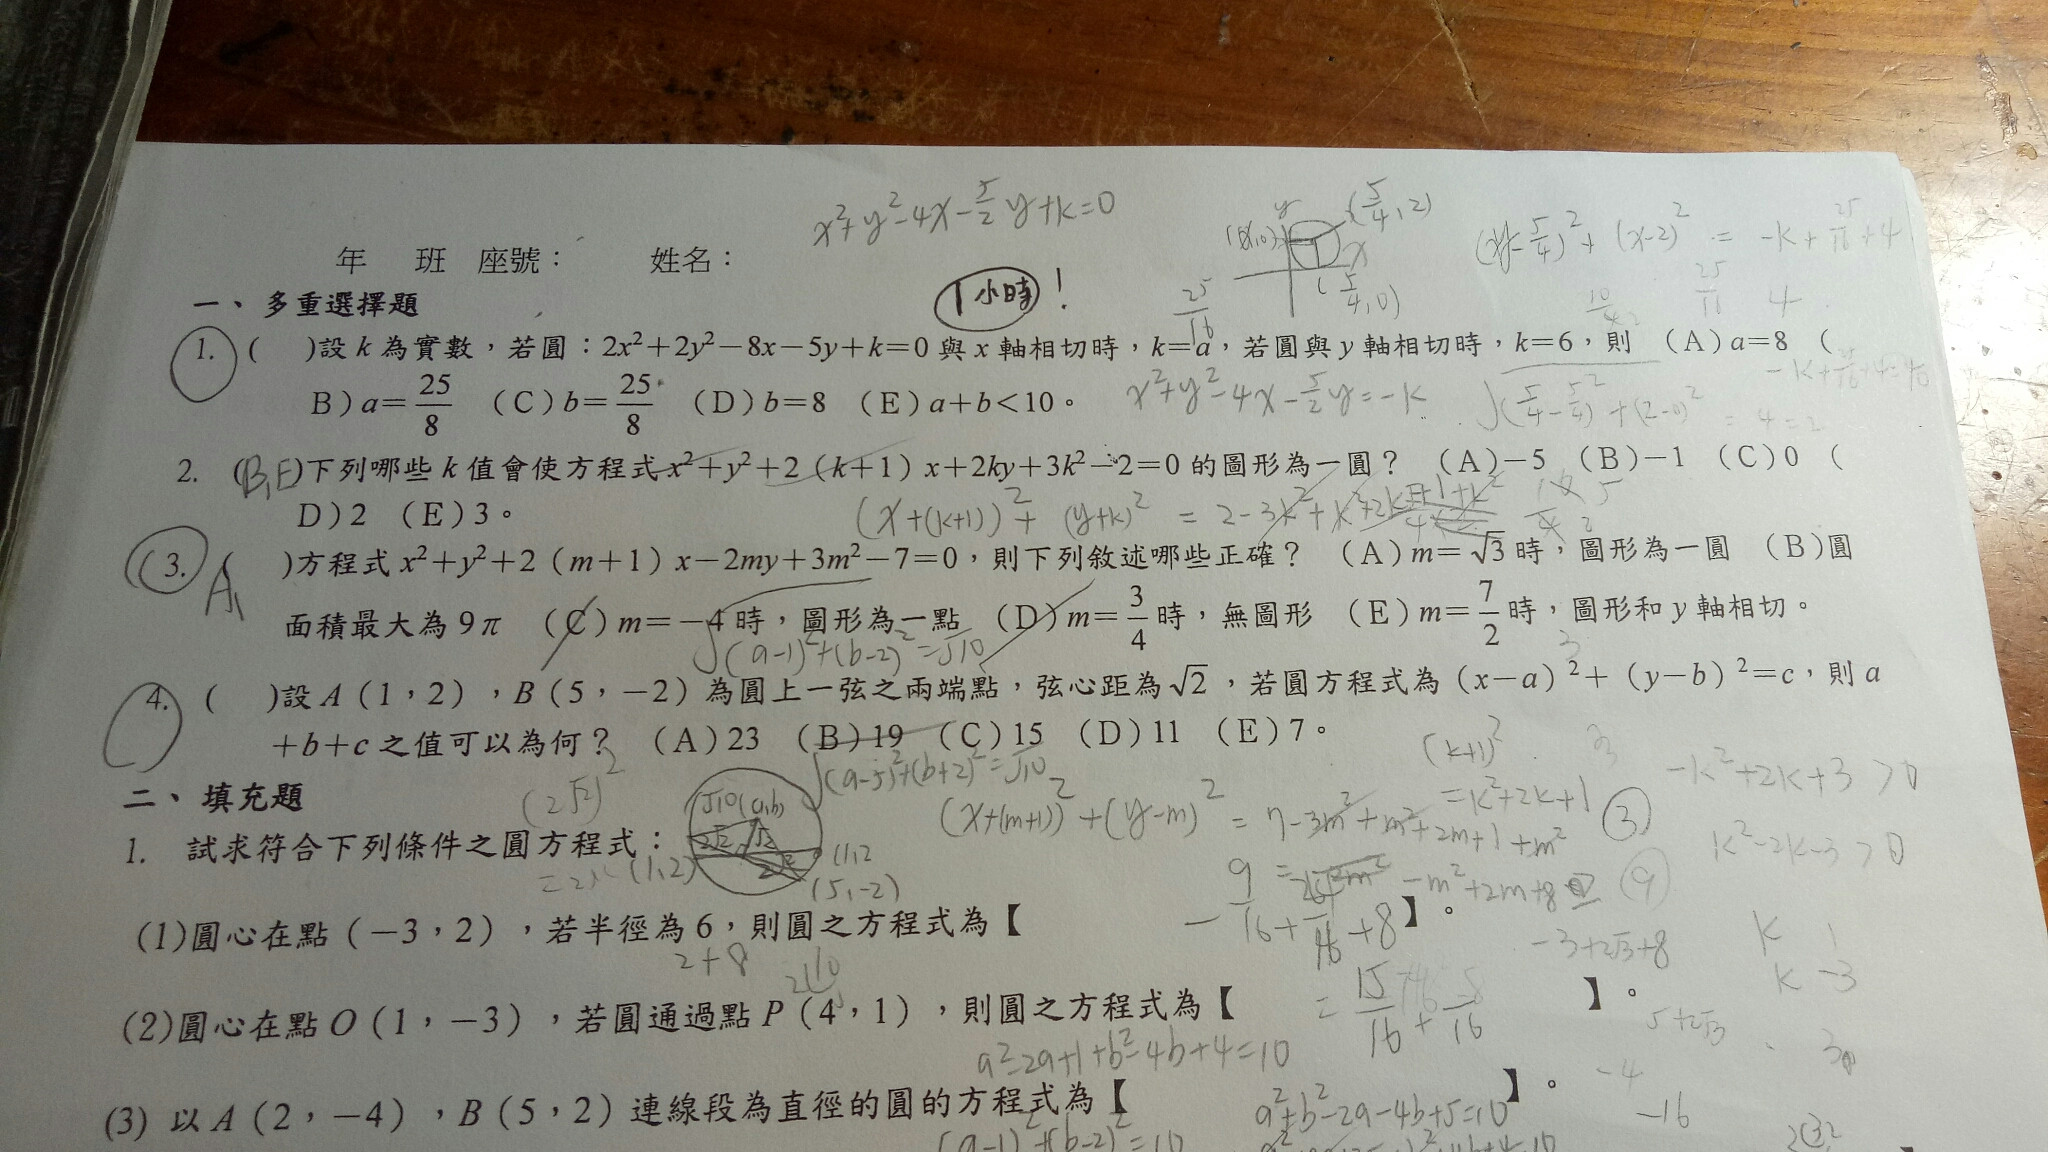 x²+y²-4x-5/2y+k=0
(5/4,2)
(5/4,0)
年 班 座號： 姓名：
1小時！
25/16
一、多重選擇題
1. ( )設k為實數，若圓：2x²+2y²－8x－5y+k=0與x軸相切時，k=a，若圓與y軸相切時，k=6，則 (A)a=8 (
B)a=25/8 (C)b=25/8 (D)b=8 (E)a+b<10。
x²+y²-4x-5/2y=-k
2. (B,E)下列哪些k值會使方程式x²+y²+2（k+1）x+2ky+3k²－2=0的圖形為一圓？ (A)－5 (B)－1 (C)0 (
D)2 (E)3。
(x+(k+1))²+(y+k)²
3. ( )方程式x²+y²+2（m+1）x－2my+3m²－7=0，則下列敘述哪些正確？ (A)m=√3時，圖形為一圓 (B)圓
A,
面積最大為9π (C)m=－4時，圖形為一點 (D)m=3/4時，無圖形 (E)m=7/2時，圖形和y軸相切。
√(a-1)²+(b-2)²=√10
4. ( )設A（1，2），B（5，－2）為圓上一弦之兩端點，弦心距為√2，若圓方程式為（x－a）²+（y－b）²=c，則a
+b+c之值可以為何？ (A)23 (B)19 (C)15 (D)11 (E)7。
(k+1)²
=k²+2k+1
-k²+2k+3>0
k²-2k-3>0
√(a-5)²+(b+2)²=√10
二、填充題
(2√2)²
(x+(m+1))²+(y-m)²=7-3m²+m²+2m+1+m²
-m²+2m+8
1. 試求符合下列條件之圓方程式：
(1,2)
(5,-2)
(1)圓心在點（－3，2），若半徑為6，則圓之方程式為【 】。
2+8
-3+2√3+8
5+2√3
k 1
k -3
(2)圓心在點O（1，－3），若圓通過點P（4，1），則圓之方程式為【 】。
a²-2a+1+b²-4b+4=10
-4
-16
(3) 以A（2，－4），B（5，2）連線段為直徑的圓的方程式為【 】。
a²+b²-2a-4b+5=10
(a-1)²+(b-2)²=10